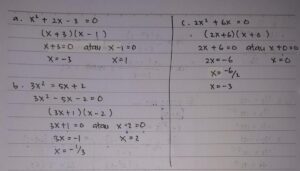 a. x² + 2x - 3 = 0
(x + 3)(x - 1)
x + 3 = 0 atau x - 1 = 0
x = -3 x = 1
b. 3x² = 5x + 2
3x² - 5x - 2 = 0
(3x + 1)(x - 2)
3x + 1 = 0 atau x - 2 = 0
3x = -1 x = 2
x = -1/3
c. 2x² + 6x = 0
(2x + 6)(x + 0)
2x + 6 = 0 atau x + 0 = 0
2x = -6 x = 0
x = -6/2
x = -3